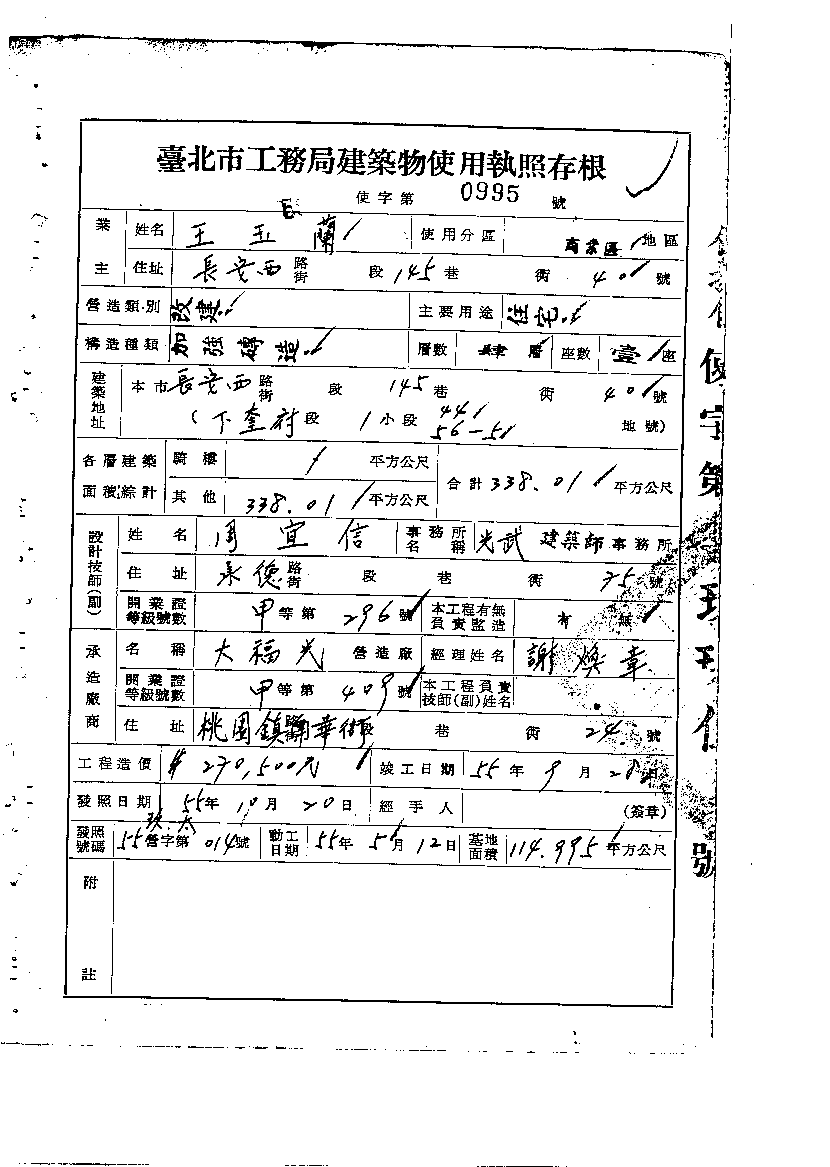 臺北市工務局建築物使用執照存根
使字第 0995 號
業主 姓名 王玉蘭 使用分區 商業區 地區
住址 長安西 路街 段 145 巷 衖 40 號
營造類別 改建 主要用途 住宅
構造種類 加強磚造 層數 層 座數 壹 座
建築地址 本市 長安西 路街 段 145 巷 衖 40 號
(下奎府 段 1 小段 44 56-51 地號)
各層建築面積綜計 騎樓 / 平方公尺 合計 338.01 平方公尺
其他 338.01 平方公尺
設計技師(副) 姓名 周宜信 事務所名稱 光武 建築師事務所
住址 承德 路街 段 巷 衖 75 號
開業證等級號數 甲等第 296 號 本工程有無負責監造 有 無
承造廠商 名稱 大福光 營造廠 經理姓名 謝煥章
開業證等級號數 甲等第 409 號 本工程負責技師(副)姓名
住址 桃園鎮 華街 段 巷 衖 24 號
工程造價 $270,500元 竣工日期 55年9月28日
發照日期 55年10月20日 經手人 (簽章)
發照號碼 55 營字第 014 號 動工日期 55年5月12日 基地面積 114.995 平方公尺
附註
使字第
號